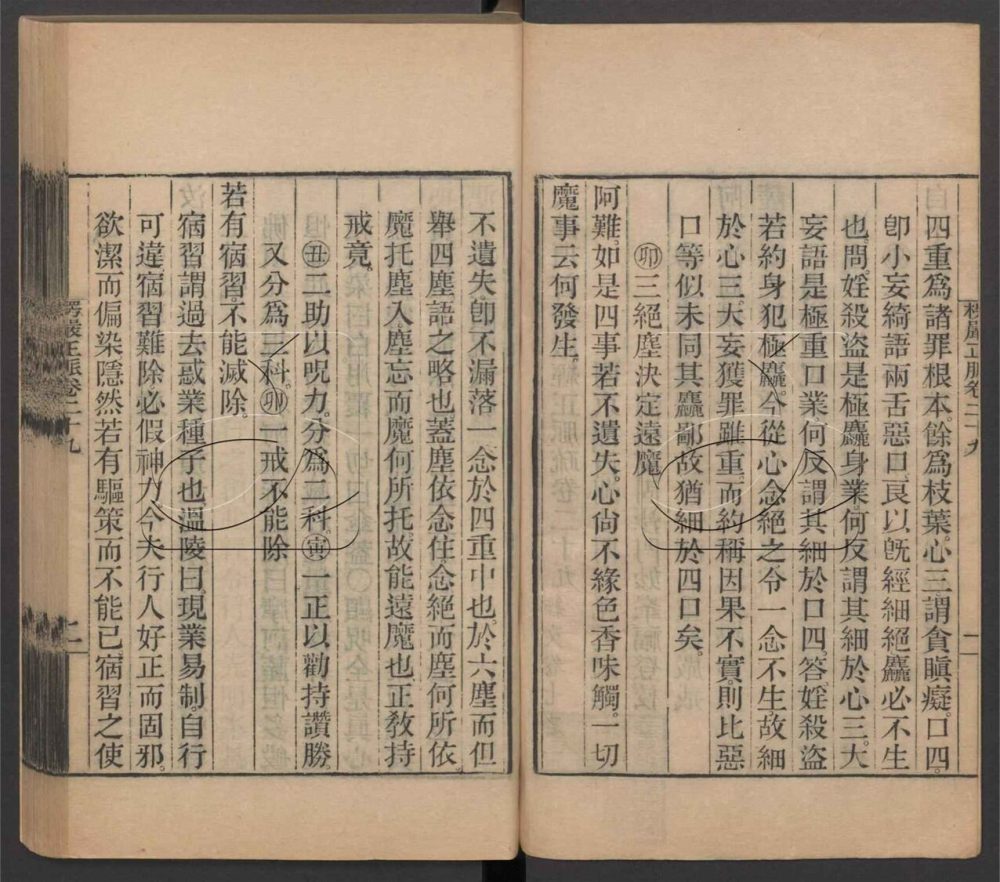 楞嚴正脈卷二十九
一
四重爲諸罪根本餘爲枝葉。心三謂貪瞋癡。口四。
卽小妄綺語兩舌惡口。良以旣經細絕麤必不生
也。問。婬殺盜是極麤身業。何反謂其細於心三。大
妄語是極重口業何反謂其細於口四。答。婬殺盜
若約身犯極麤。今從心念絕之令一念不生故細
於心三。大妄獲罪雖重。而約稱因果不實。則比惡
口等似未同其麤鄙故猶細於四口矣。
㊞三絕塵決定遠魔
阿難。如是四事若不遺失。心尙不緣色香味觸。一切
魔事云何發生。
不遺失。卽不漏落一念於四重中也。於六塵而但
舉四塵。語之略也。蓋塵依念住念絕而塵何所依
魔托塵入。塵忘而魔何所托。故能遠魔也。正敎持
戒竟。
㊄二助以呪力。分爲二科。㊅一正以勸持讚勝。
又分爲三科。㊞一戒不能除
若有宿習。不能滅除。
宿習謂過去惑業種子也。溫陵曰。現業易制。自行
可違宿習難除。必假神力今夫行人好正而固邪。
欲潔而偏染隱然若有驅策而不能已宿習之使
楞嚴正脈卷二十九
二